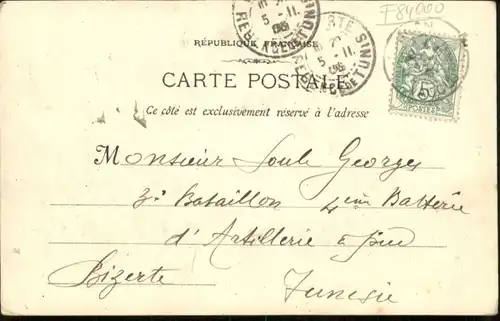 F84000
5 - II
5 - II
RÉPUBLIQUE FRANÇAISE
CARTE POSTALE
Ce côté est exclusivement réservé à l'adresse
Monsieur Soulé Georges
3e Bataillon 4eme Batterie
d'Artillerie à pied
Bizerte
Tunisie